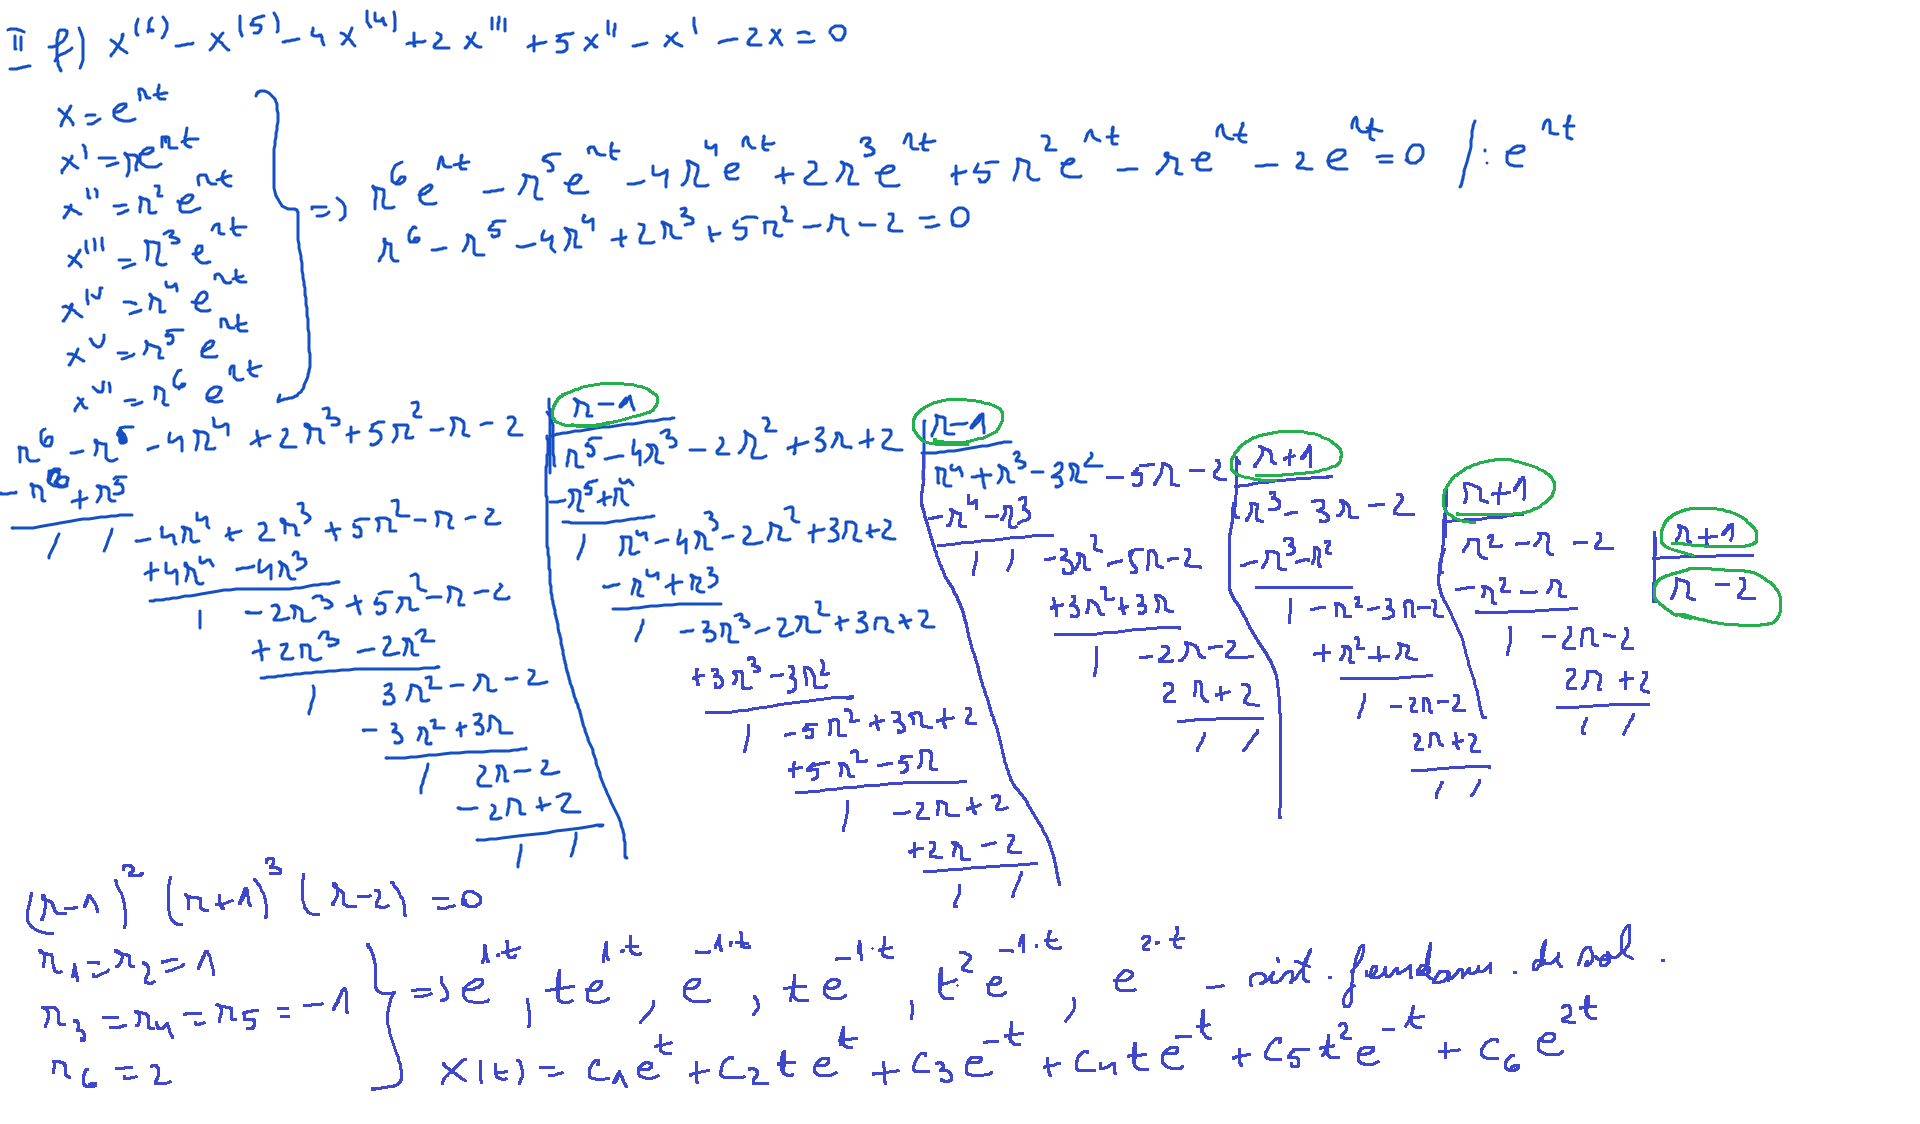 II f) x^(6) - x^(5) - 4x^(4) + 2x''' + 5x'' - x' - 2x = 0
x = e^rt
x' = re^rt
x'' = r^2 e^rt
x''' = r^3 e^rt
x^IV = r^4 e^rt
x^V = r^5 e^rt
x^VI = r^6 e^rt
=> r^6 e^rt - r^5 e^rt - 4r^4 e^rt + 2r^3 e^rt + 5r^2 e^rt - re^rt - 2e^rt = 0 /: e^rt
r^6 - r^5 - 4r^4 + 2r^3 + 5r^2 - r - 2 = 0
r^6 - r^5 - 4r^4 + 2r^3 + 5r^2 - r - 2 | r-1
-r^6 + r^5
/ / -4r^4 + 2r^3 + 5r^2 - r - 2
+4r^4 - 4r^3
/ -2r^3 + 5r^2 - r - 2
+2r^3 - 2r^2
/ 3r^2 - r - 2
-3r^2 + 3r
/ 2r - 2
-2r + 2
/ /
r^5 - 4r^3 - 2r^2 + 3r + 2 | r-1
-r^5 + r^4
/ r^4 - 4r^3 - 2r^2 + 3r + 2
-r^4 + r^3
/ -3r^3 - 2r^2 + 3r + 2
+3r^3 - 3r^2
/ -5r^2 + 3r + 2
+5r^2 - 5r
/ -2r + 2
+2r - 2
/ /
r^4 + r^3 - 3r^2 - 5r - 2 | r+1
-r^4 - r^3
/ / -3r^2 - 5r - 2
+3r^2 + 3r
/ -2r - 2
2r + 2
/ /
r^3 - 3r - 2 | r+1
-r^3 - r^2
/ -r^2 - 3r - 2
+r^2 + r
/ -2r - 2
2r + 2
/ /
r^2 - r - 2 | r+1
-r^2 - r
/ -2r - 2
2r + 2
/ /
r - 2
(r-1)^2 (r+1)^3 (r-2) = 0
r_1 = r_2 = 1
r_3 = r_4 = r_5 = -1
r_6 = 2
=> e^1·t, te^1·t, e^-1·t, te^-1·t, t^2 e^-1·t, e^2·t - sist. fundam. de sol.
x(t) = c_1 e^t + c_2 te^t + c_3 e^-t + c_4 te^-t + c_5 t^2 e^-t + c_6 e^2t